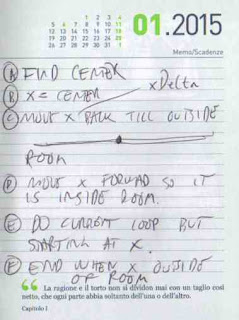 5 12 19 26
6 13 20 27
7 14 21 28
1 8 15 22 29
2 9 16 23 30
3 10 17 24 31
4 11 18 25
01.2015
Memo/Scadenze
A FIND CENTER
xDelta
B X = CENTER
C MOVE X BACK TILL OUTSIDE
ROOM
D MOVE X FORWARD SO IT
IS INSIDE ROOM.
E DO CURRENT LOOP BUT
STARTING AT X.
F END WHEN X OUTSIDE
OF ROOM
“ La ragione e il torto non si dividon mai con un taglio così
netto, che ogni parte abbia soltanto dell'una o dell'altro.
Capitolo I